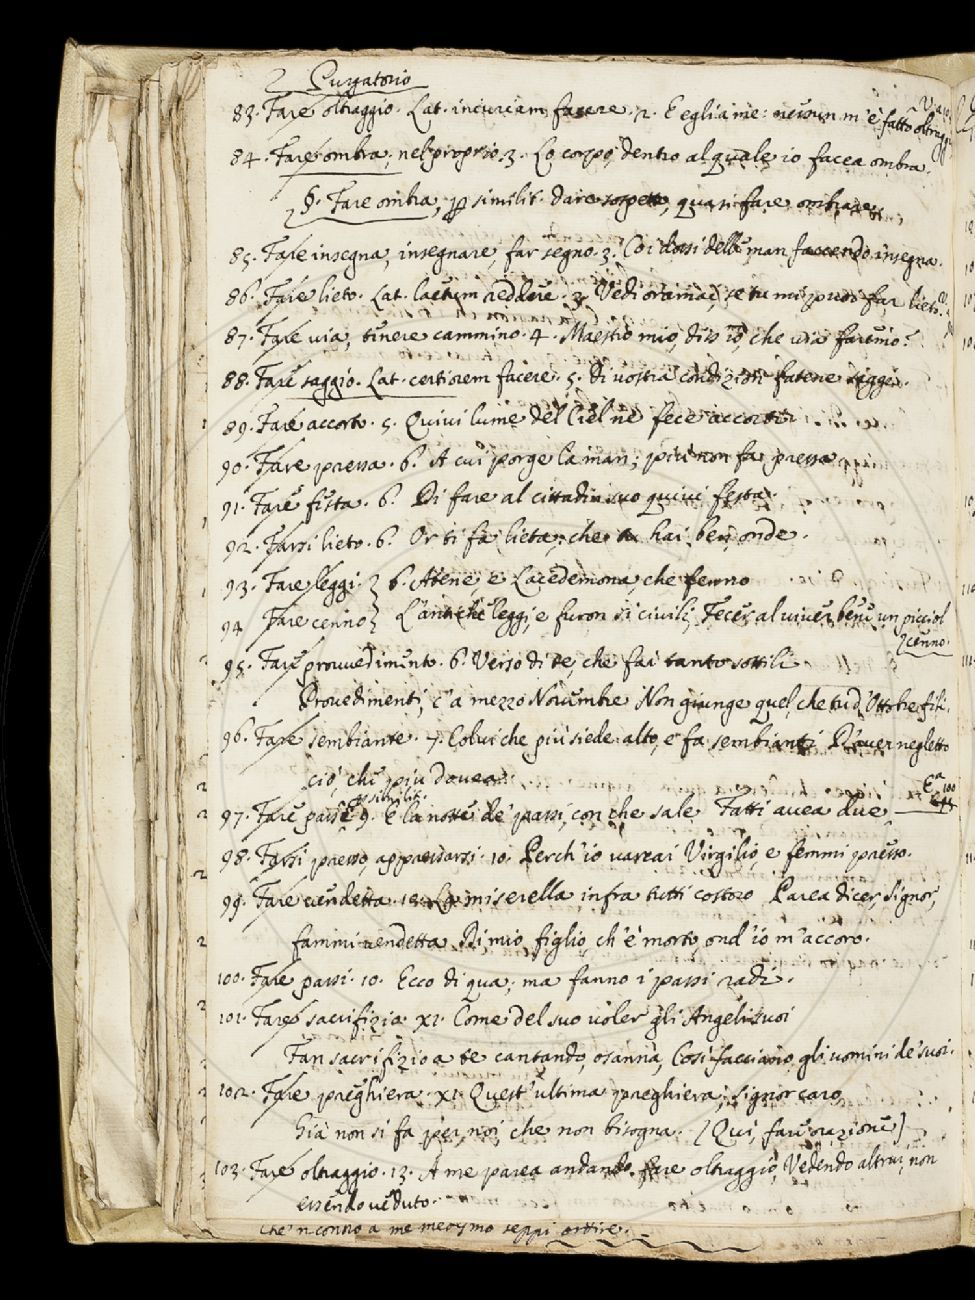 2 Purgatorio
83. Fare oltraggio. Lat. iniuriam facere. 2. E egli a me: nessun m'è fatto oltraggio
84. Fare ombra, nel proprio 3. Lo corpo, dentro al quale io facea ombra.
§. Fare ombra, per similit. dare sospetto, quasi fare ombrare.
85. Fare insegna, insegnare, far segno. 3. Coi dossi delle man faccendo insegna.
86. Fare lieto. Lat. laetum reddere. 3. Vedi oramai, se tu mi puoi far lieto.
87. Fare via, tenere cammino. 4. Maestro mio, diss' io, che via faremo?
88. Fare saggio. Lat. certiorem facere. 5. di vostra condizion fatene saggi.
89. Fare accorto. 5. Quivi lume del Ciel ne fece accorti.
90. Fare pressa. 6. A cui porge la man, più non fa pressa
91. Fare festa. 6. Di fare al cittadin suo quivi festa.
92. Farsi lieto. 6. Or ti fa lieta, che tu hai ben onde.
93. Fare leggi. } 6. Atene, e Lacedemona, che fenno
94 Fare cenno } L'antiche leggi, e furon sì civili, Fecer al viver bene un picciol
cenno.
95. Fare provvedimento. 6. Verso di te, che fai tanto sottili
Provedimenti, c'a mezzo Novembre Non giunge quel, che tu d'Ottobre fili.
96. Fare sembiante. 7. Colui che più siede alto, e fa sembianti D'aver negletto
ciò, che più dovea.
per similit.
97. Fare passi 9. E la notte de' passi, con che sale Fatti avea due
98. Farsi presso, appressarsi. 10. Perch' io varcai Virgilio, e femmi presso.
99. Fare vendetta. 10. La miserella infra tutti costoro Parea dicer, Signor,
fammi vendetta Di mio figlio, ch'è morto, ond' io m'accoro.
100. Fare passi. 10. Ecco di qua, ma fanno i passi radi.
101. Fare sacrifizio. XI. Come del suo voler gli Angeli suoi
Fan sacrifizio a te cantando, osanna, Così facciano gli uomini de' suoi.
102. Fare preghiera. XI. Quest' ultima preghiera, Signor caro,
Già non si fa per noi, che non bisogna. [Qui, fare orazione]
103. Fare oltraggio. 13. A me parea andando fare oltraggio, Vedendo altrui, non
essendo veduto.
Che 'n contro a me medesmo seppi ardire.